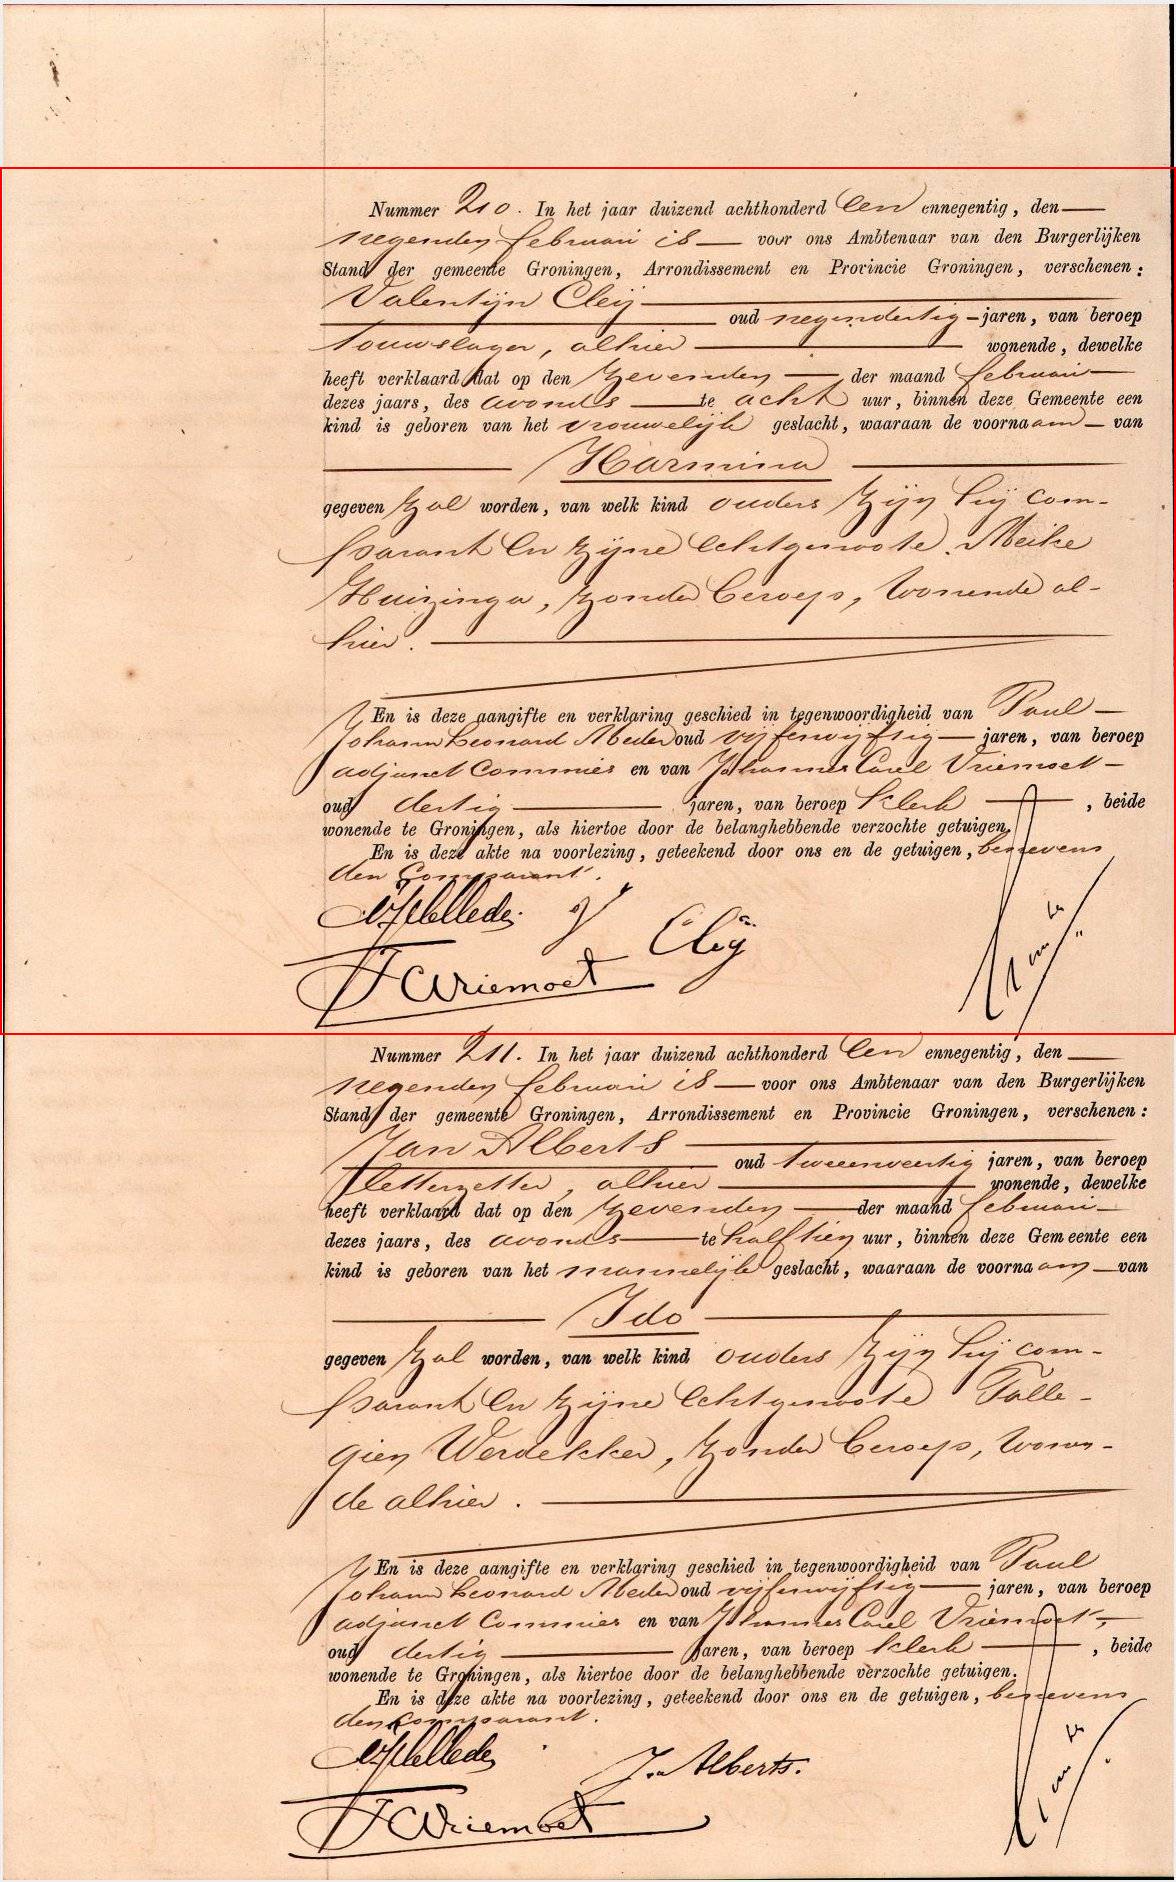 Nummer 210. In het jaar duizend achthonderd Een ennegentig, den
negenden februari is voor ons Ambtenaar van den Burgerlijken
Stand der gemeente Groningen, Arrondissement en Provincie Groningen, verschenen:
Valentijn Cleij
oud negendertig jaren, van beroep
touwslager, alhier wonende, dewelke
heeft verklaard dat op den zevenden der maand februari
dezes jaars, des avonds te acht uur, binnen deze Gemeente een
kind is geboren van het vrouwelijk geslacht, waaraan de voornaam van
Harmina
gegeven zal worden, van welk kind ouders zijn hij com-
parant en zijne echtgenoote Meike
Huizinga, zonder beroep, wonende al-
hier.
En is deze aangifte en verklaring geschied in tegenwoordigheid van Paul
Johann Leonard Meder oud vijfenvijftig jaren, van beroep
adjunct Commies en van Johannes Carel Vriemoet
oud dertig jaren, van beroep klerk, beide
wonende te Groningen, als hiertoe door de belanghebbende verzochte getuigen.
En is deze akte na voorlezing, geteekend door ons en de getuigen, benevens
den Comparant.
V Cleij
JCVriemoet
Nummer 211. In het jaar duizend achthonderd Een ennegentig, den
negenden februari is voor ons Ambtenaar van den Burgerlijken
Stand der gemeente Groningen, Arrondissement en Provincie Groningen, verschenen:
Jan Alberts
oud tweeenveertig jaren, van beroep
letterzetter, alhier wonende, dewelke
heeft verklaard dat op den zevenden der maand februari
dezes jaars, des avonds te half tien uur, binnen deze Gemeente een
kind is geboren van het mannelijk geslacht, waaraan de voornaam van
Ido
gegeven zal worden, van welk kind ouders zijn hij com-
parant en zijne echtgenoote Talle-
gien Werdekker, zonder beroep, wonen-
de alhier.
En is deze aangifte en verklaring geschied in tegenwoordigheid van Paul
Johann Leonard Meder oud vijfenvijftig jaren, van beroep
adjunct Commies en van Johannes Carel Vriemoet,
oud dertig jaren, van beroep klerk, beide
wonende te Groningen, als hiertoe door de belanghebbende verzochte getuigen.
En is deze akte na voorlezing, geteekend door ons en de getuigen, benevens
den comparant.
J. Alberts.
JCVriemoet